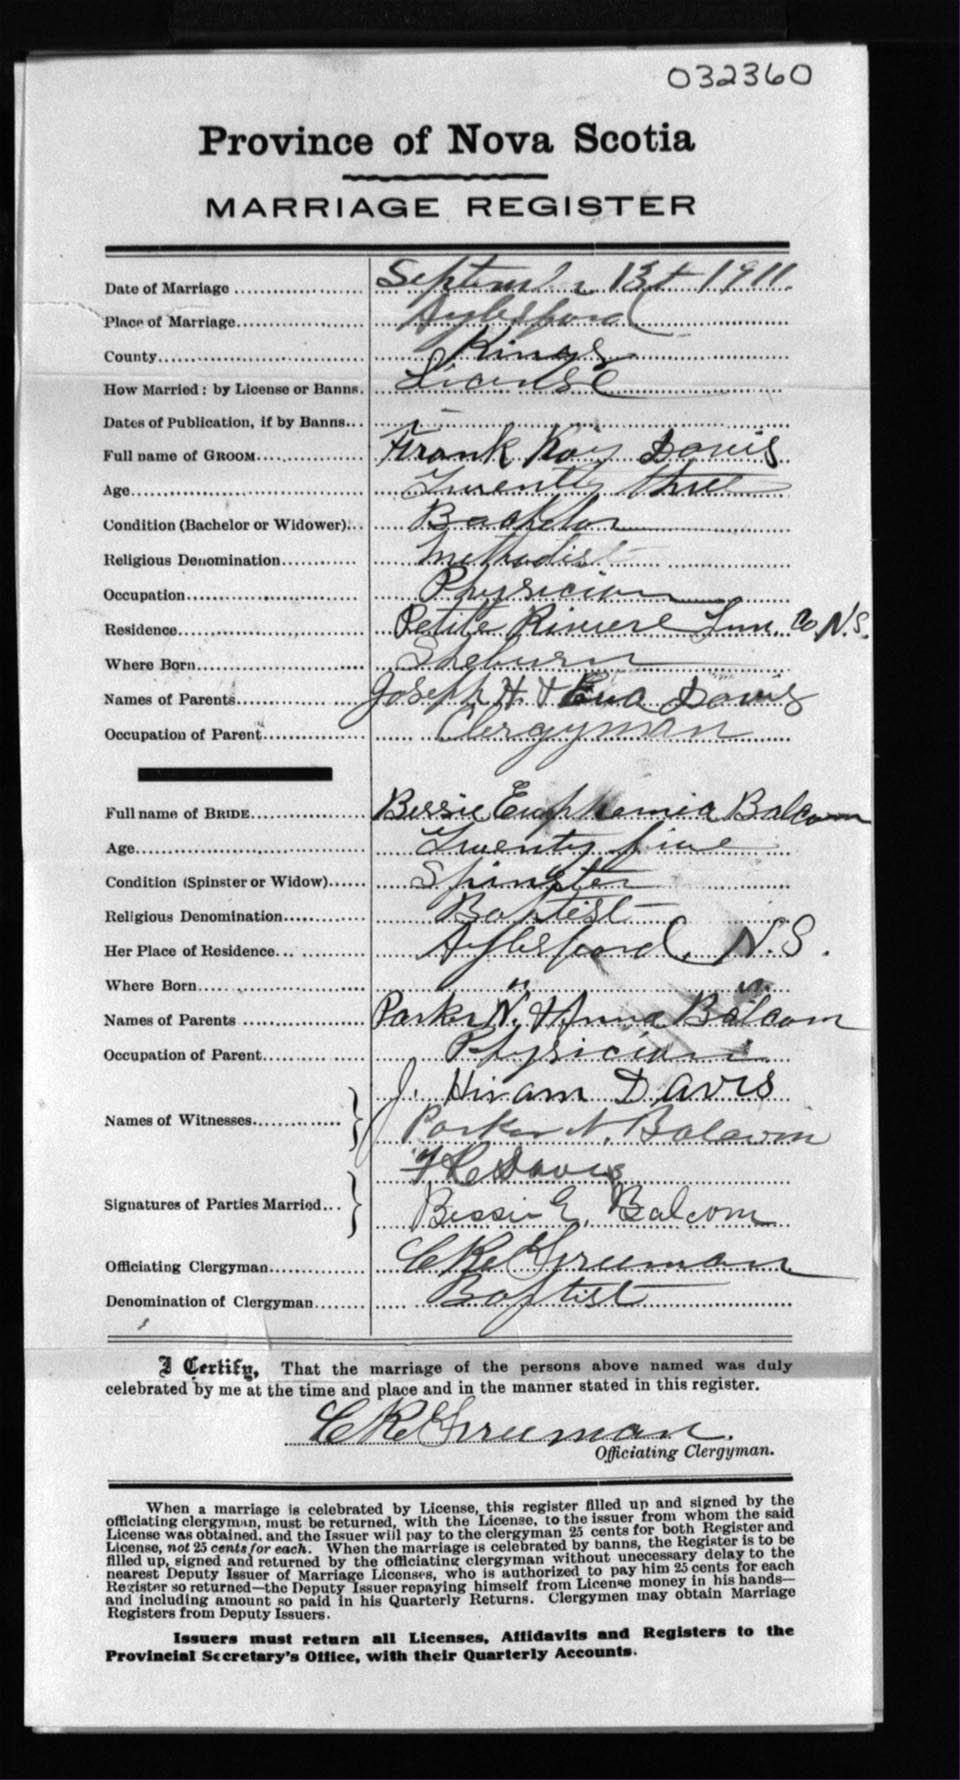 032360
Province of Nova Scotia
MARRIAGE REGISTER
Date of Marriage September 13t 1911.
Place of Marriage Aylesford
County Kings
How Married: by License or Banns. License
Dates of Publication, if by Banns... -
Full name of GROOM Frank Roy Davis
Age Twenty three
Condition (Bachelor or Widower) Bachelor
Religious Denomination Methodist
Occupation Physician
Residence Petite Riviere Lun. Co. N.S.
Where Born Sheburn
Names of Parents Joseph H. & Eva Davis
Occupation of Parent Clergyman
Full name of BRIDE Bessie Euphemia Balcom
Age Twenty five
Condition (Spinster or Widow) Spinster
Religious Denomination Baptist
Her Place of Residence Aylesford, N.S.
Where Born " "
Names of Parents Parker N. & Anna Balcom
Occupation of Parent Physician
J. Hiram Davis
Names of Witnesses
Parker N. Balcom
F R Davis
Signatures of Parties Married
Bessie E. Balcom
Officiating Clergyman
Denomination of Clergyman Baptist
I Certify, That the marriage of the persons above named was duly
celebrated by me at the time and place and in the manner stated in this register.
Officiating Clergyman.
When a marriage is celebrated by License, this register filled up and signed by the
officiating clergyman, must be returned, with the License, to the issuer from whom the said
License was obtained, and the Issuer will pay to the clergyman 25 cents for both Register and
License, not 25 cents for each. When the marriage is celebrated by banns, the Register is to be
filled up, signed and returned by the officiating clergyman without unnecessary delay to the
nearest Deputy Issuer of Marriage Licenses, who is authorized to pay him 25 cents for each
Register so returned—the Deputy Issuer repaying himself from License money in his hands—
and including amount so paid in his Quarterly Returns. Clergymen may obtain Marriage
Registers from Deputy Issuers.
Issuers must return all Licenses, Affidavits and Registers to the
Provincial Secretary's Office, with their Quarterly Accounts.